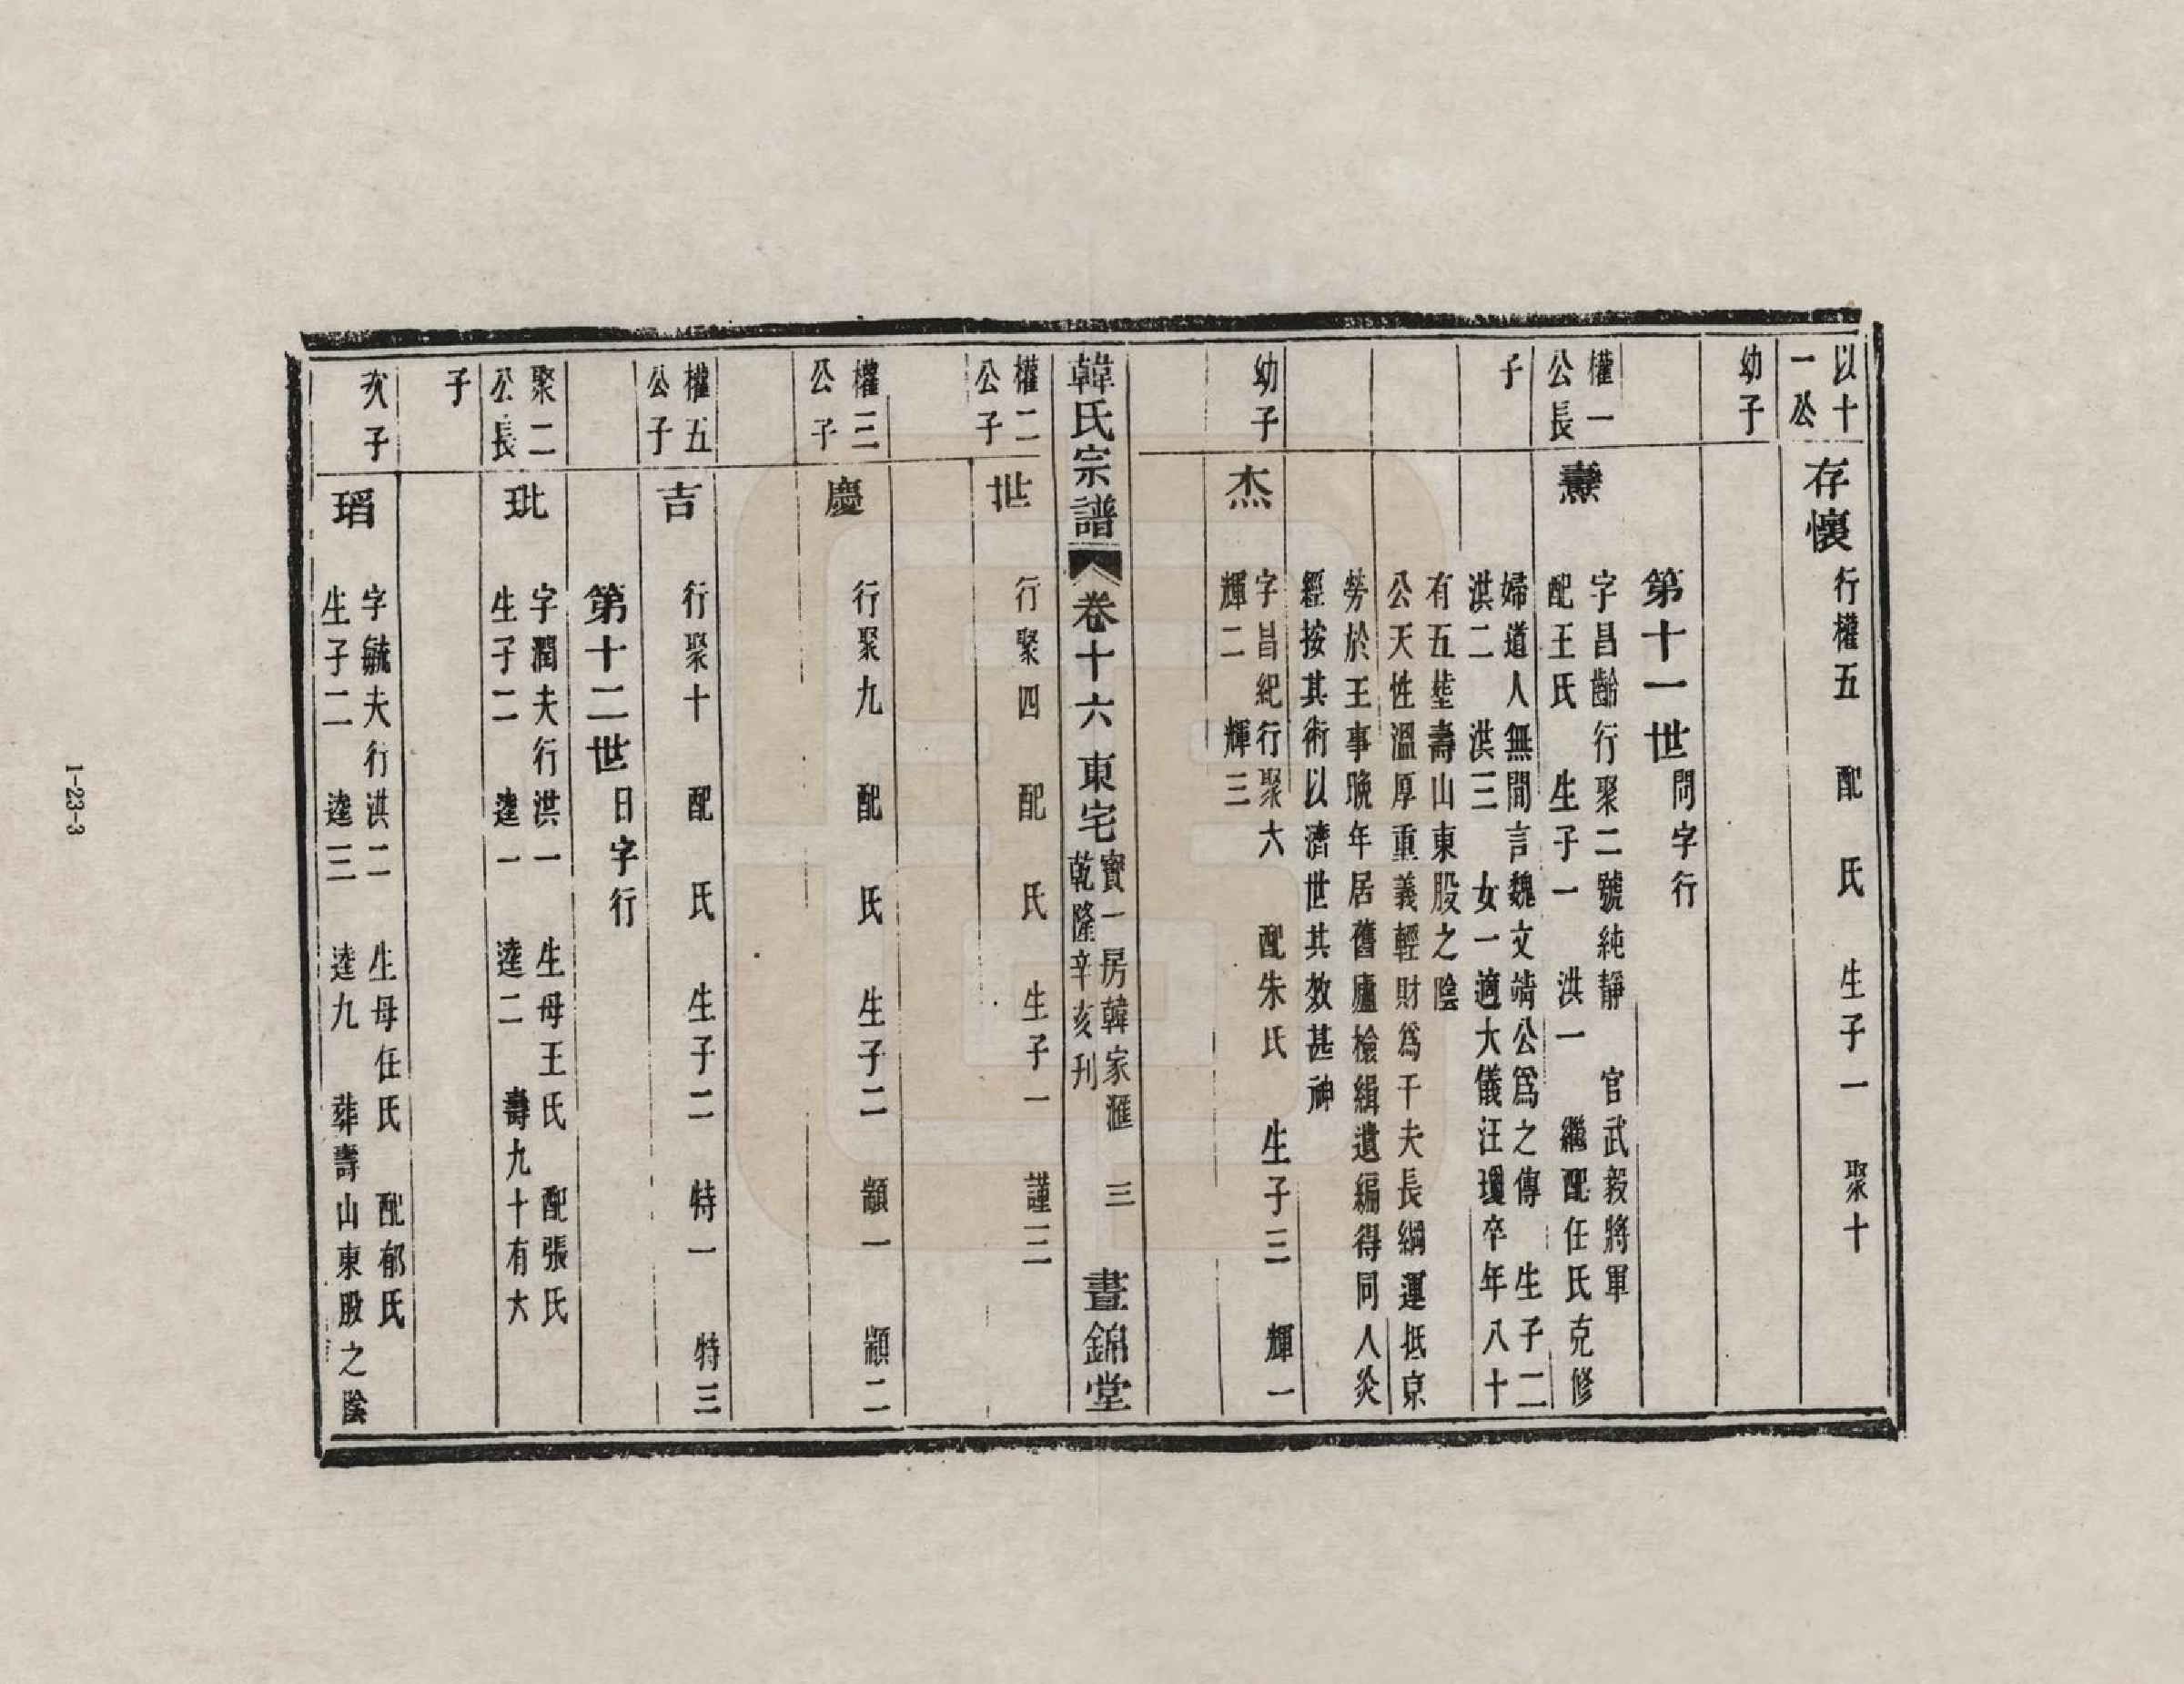 以十
一公
存懷
行權五　配　氏　生子一　聚十
幼子
第十一世
問字行
權一
公長
子
燾
字昌齡行聚二號純靜　官武毅將軍
配王氏　生子一　洪一　繼配任氏克修
婦道人無間言魏文靖公爲之傳　生子二
洪二　洪三　女一適大儀汪瓊卒年八十
有五塟壽山東股之陰
公天性溫厚重義輕財爲千夫長綱運抵京
勞於王事晚年居舊廬檢緝遺編得同人灸
經按其術以濟世其效甚神
幼子
杰
字昌紀行聚六　配朱氏　生子三　輝一
輝二　輝三
韓氏宗譜
卷十六　東宅
寶一房韓家滙
乾隆辛亥刊
三
晝錦堂
權二
公子
世
行聚四　配　氏　生子一　謹三
權三
公子
慶
行聚九　配　氏　生子二　顓一　顓二
權五
公子
吉
行聚十　配　氏　生子二　特一　特三
第十二世
日字行
聚二
公長
子
玭
字潤夫行洪一　生母王氏　配張氏
生子二　逵一　逵二　壽九十有六
次子
瑫
字毓夫行洪二　生母任氏　配郁氏
生子二　逵三　逵九　葬壽山東股之陰
1-23-3